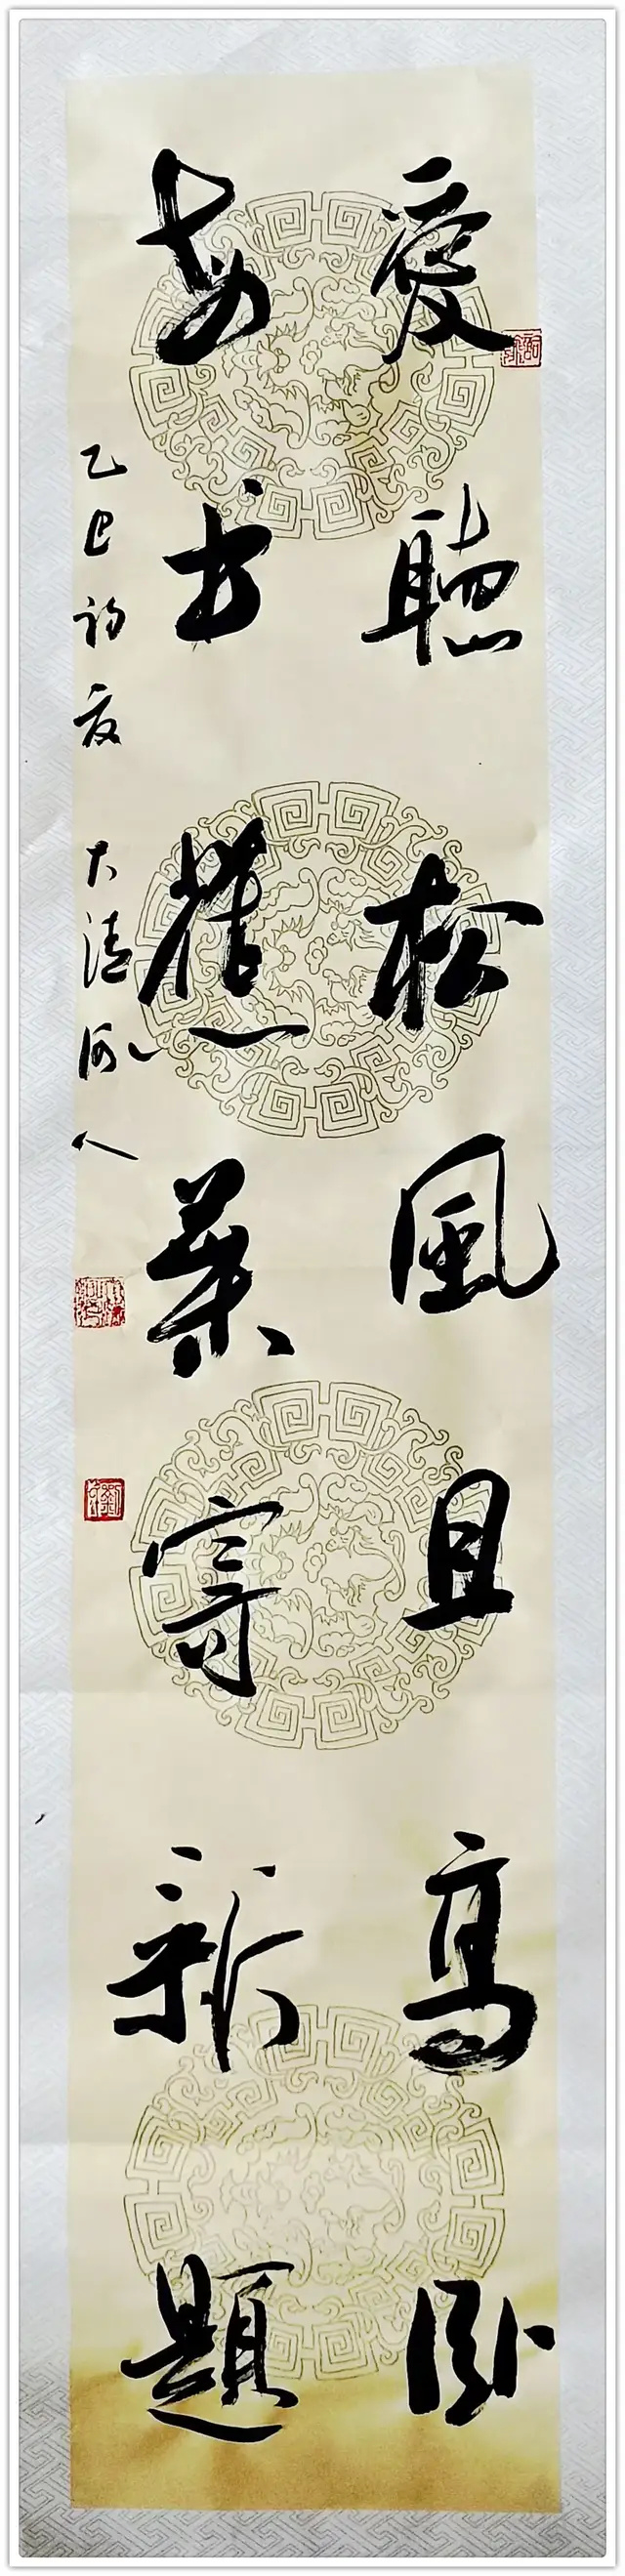 愛聽松風且高卧
每書蕉葉寄新題
乙巳初夏 大清河人